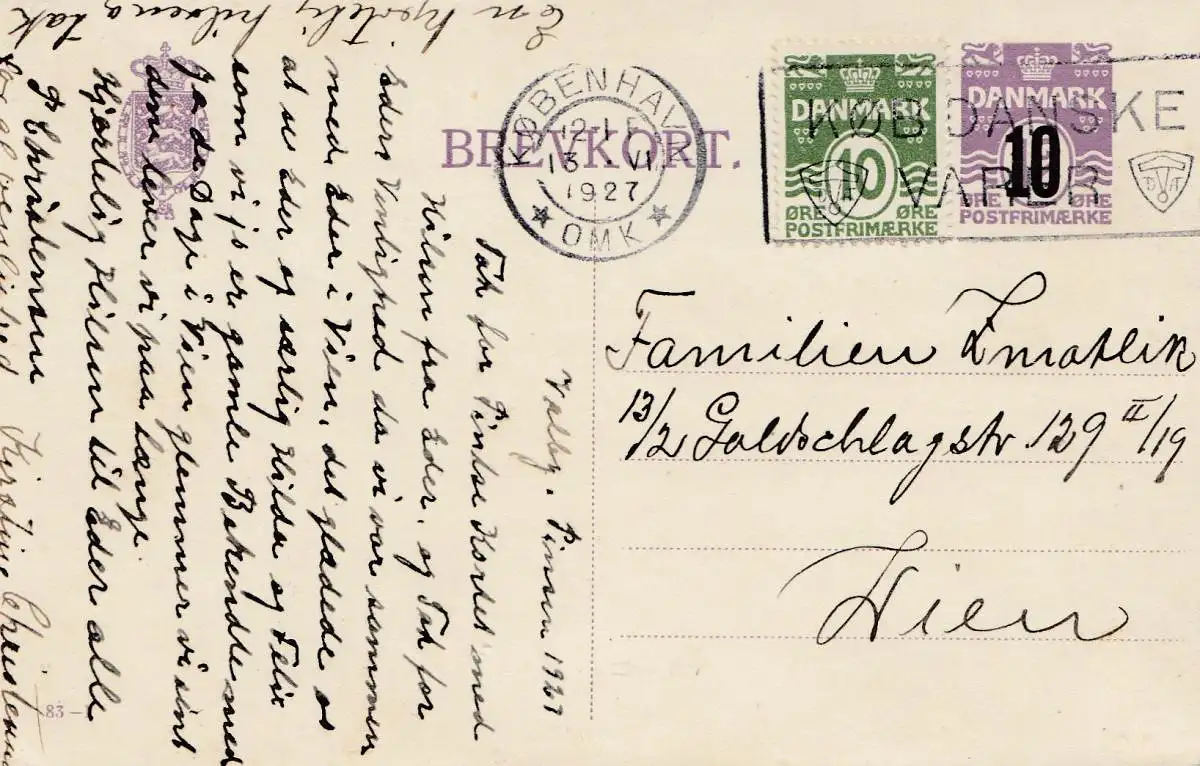 BREVKORT.
KØBENHAVN
12-1 E
13. VI
1927
OMK
DANMARK
10
ØRE ØRE
POSTFRIMÆRKE
DANMARK
10
ØRE ØRE
POSTFRIMÆRKE
KØB DANSKE
VARER
D A
Familien
13/2 Goldschlagstr 129 II/19
Wien
Valby. Pinsen 1927
Tak for Pinse Kortet med
Hilsen fra Eder, og Tak for
Eders Venlighed da vi var sammen
med Eder i Wien, det glædede os
at se Eder og særlig Hilda og Felix
som vi jo er gamle Bekendte med
Ja de Dage i Wien glemmer vi sent
dem lever vi paa længe.
Hjertelig Hilsen til Eder alle
P Christensen
En hjertelig hilsen og tak
for Kirstine Christensen
83 -